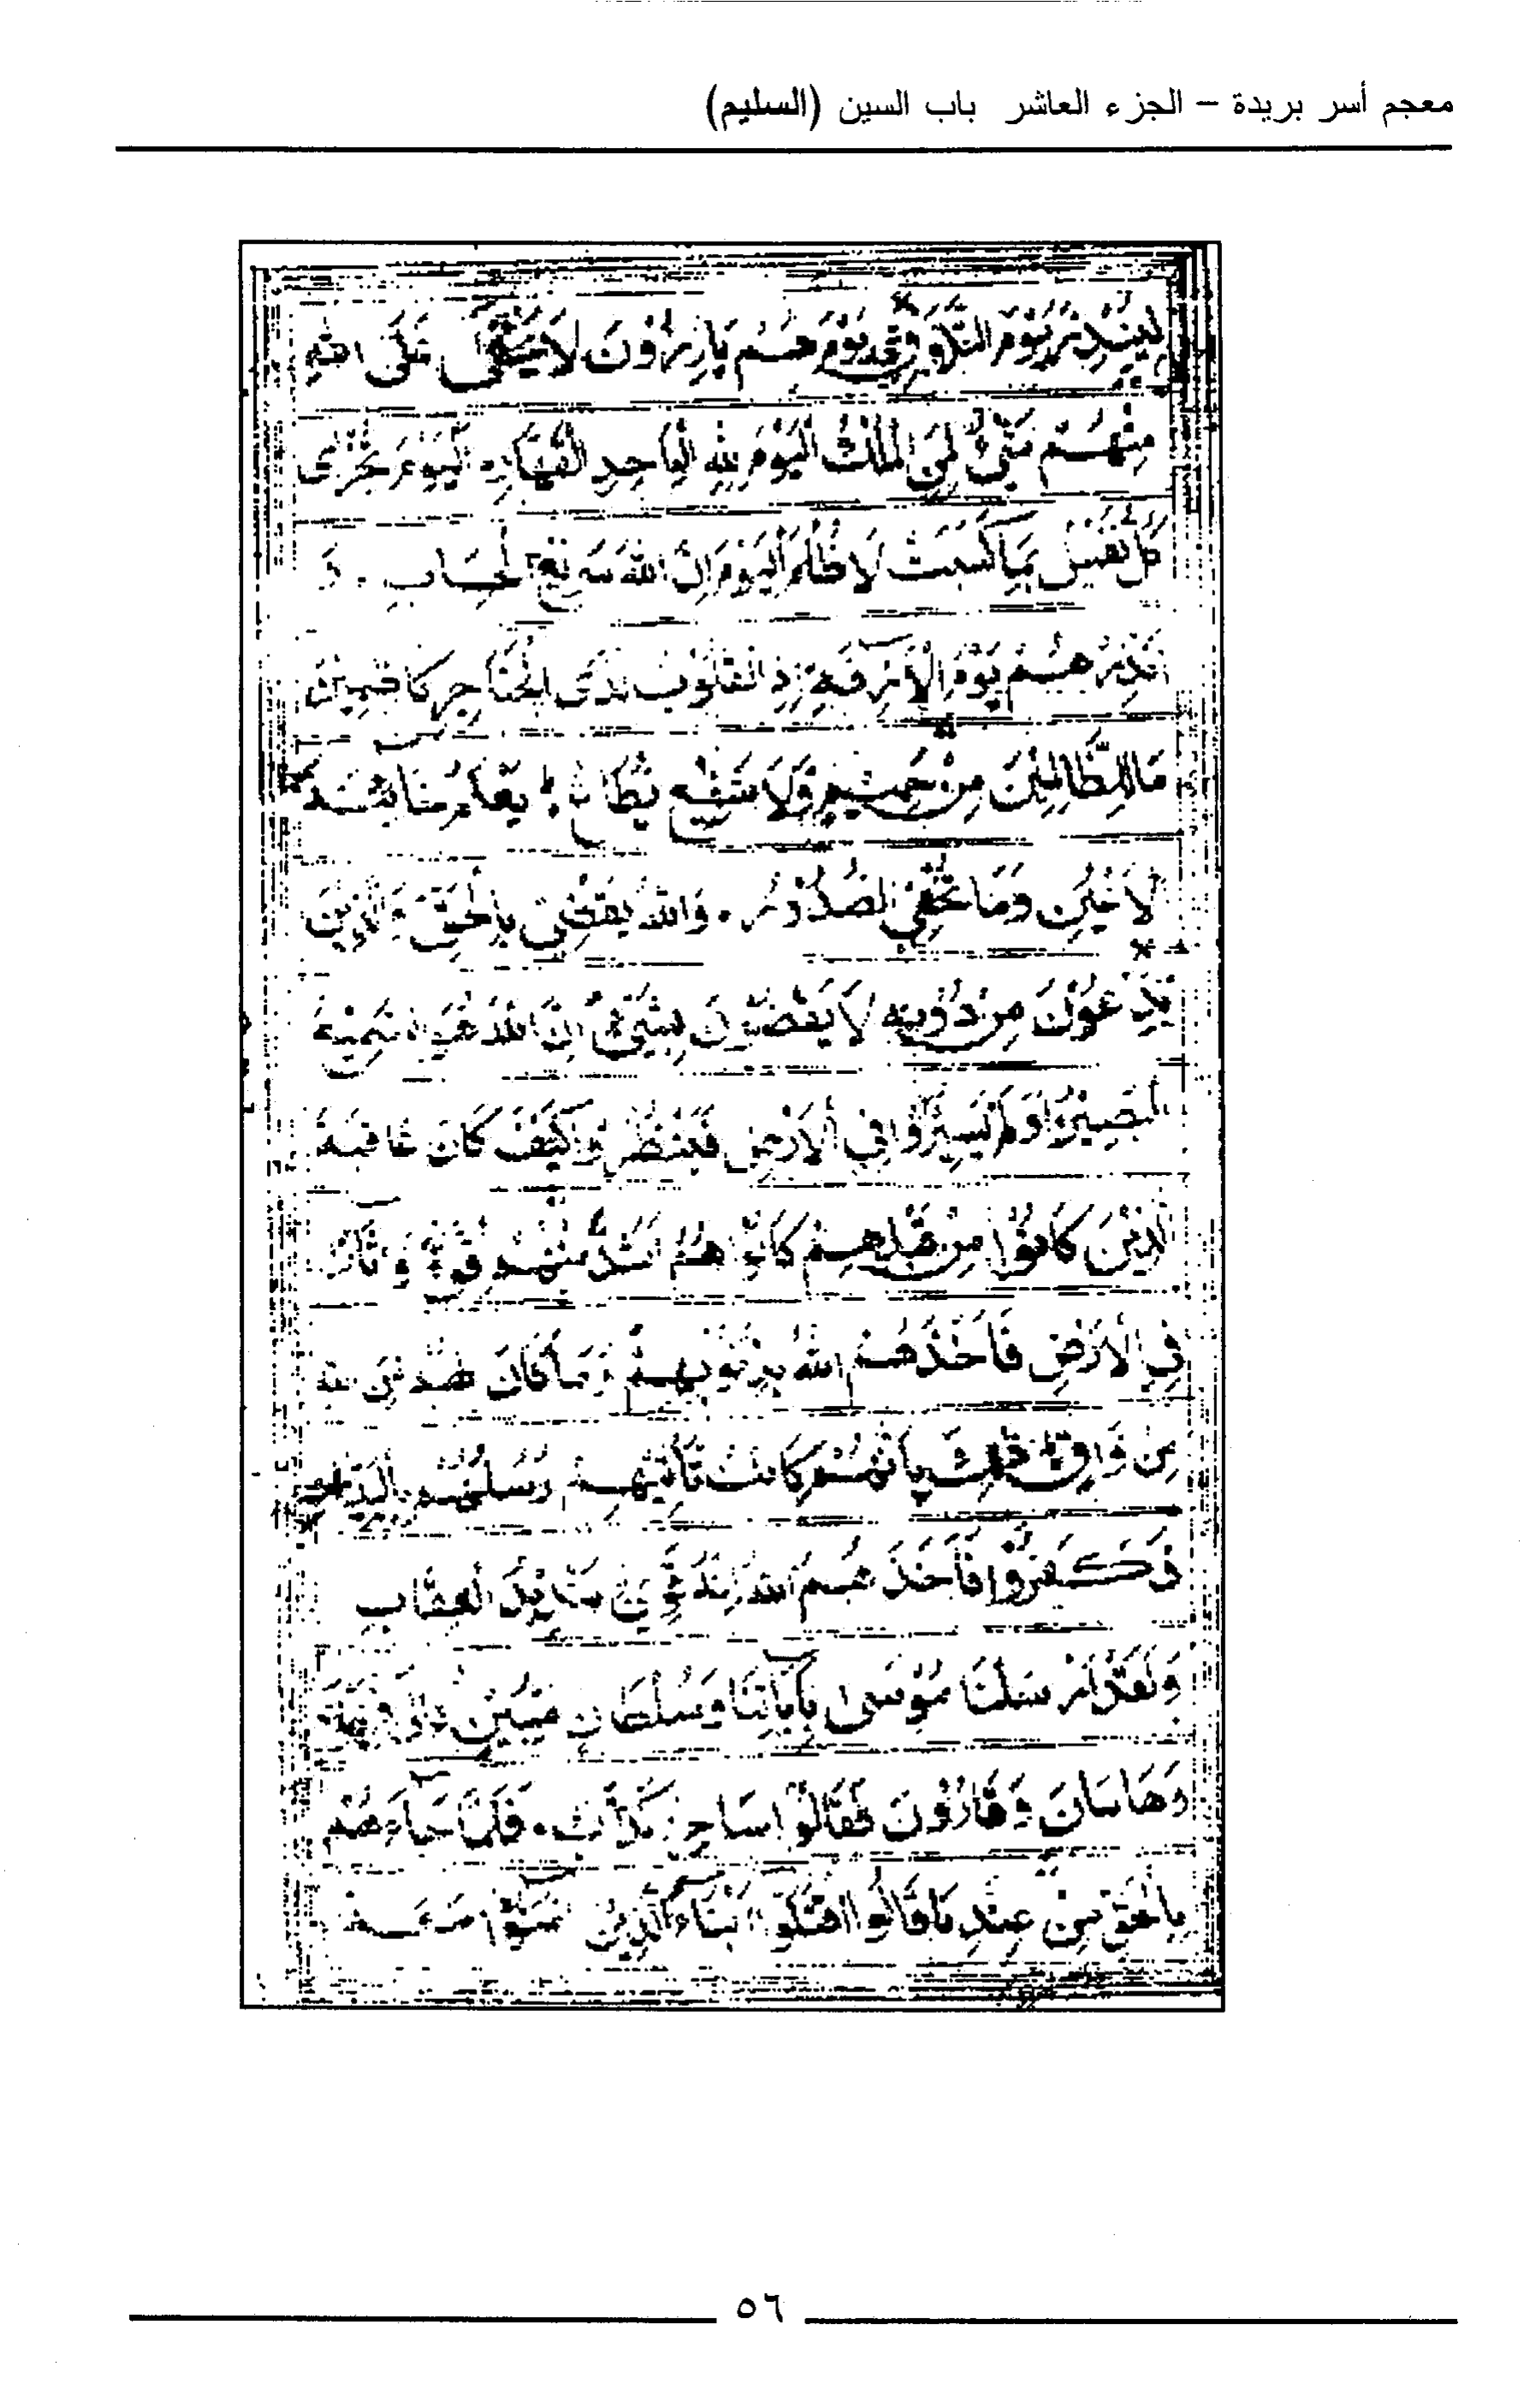 معجم أسر بريدة – الجزء العاشر باب السين (السليم)
لِيُنْذِرَ يَوْمَ التَّلَاقِ يَوْمَ هُمْ بَارِزُونَ لَا يَخْفَى عَلَى اللهِ
مِنْهُمْ شَيْءٌ لِمَنِ الْمُلْكُ الْيَوْمَ لِلهِ الْوَاحِدِ الْقَهَّارِ. الْيَوْمَ تُجْزَى
كُلُّ نَفْسٍ بِمَا كَسَبَتْ لَا ظُلْمَ الْيَوْمَ إِنَّ اللهَ سَرِيعُ الْحِسَابِ. وَ
أَنْذِرْهُمْ يَوْمَ الْآزِفَةِ إِذِ الْقُلُوبُ لَدَى الْحَنَاجِرِ كَاظِمِينَ
مَا لِلظَّالِمِينَ مِنْ حَمِيمٍ وَلَا شَفِيعٍ يُطَاعُ يَعْلَمُ خَائِنَةَ
الْأَعْيُنِ وَمَا تُخْفِي الصُّدُورُ. وَاللهُ يَقْضِي بِالْحَقِّ وَالَّذِينَ
يَدْعُونَ مِنْ دُونِهِ لَا يَقْضُونَ بِشَيْءٍ إِنَّ اللهَ هُوَ السَّمِيعُ
الْبَصِيرُ أَوَلَمْ يَسِيرُوا فِي الْأَرْضِ فَيَنْظُرُوا كَيْفَ كَانَ عَاقِبَةُ
الَّذِينَ كَانُوا مِنْ قَبْلِهِمْ كَانُوا هُمْ أَشَدَّ مِنْهُمْ قُوَّةً وَآثَارًا
فِي الْأَرْضِ فَأَخَذَهُمُ اللهُ بِذُنُوبِهِمْ وَمَا كَانَ لَهُمْ مِنَ اللهِ
مِنْ وَاقٍ ذَلِكَ بِأَنَّهُمْ كَانَتْ تَأْتِيهِمْ رُسُلُهُمْ بِالْبَيِّنَاتِ
فَكَفَرُوا فَأَخَذَهُمُ اللهُ إِنَّهُ قَوِيٌّ شَدِيدُ الْعِقَابِ
وَلَقَدْ أَرْسَلْنَا مُوسَى بِآيَاتِنَا وَسُلْطَانٍ مُبِينٍ إِلَى فِرْعَوْنَ
وَهَامَانَ وَقَارُونَ فَقَالُوا سَاحِرٌ كَذَّابٌ. فَلَمَّا جَاءَهُمْ
بِالْحَقِّ مِنْ عِنْدِنَا قَالُوا اقْتُلُوا أَبْنَاءَ الَّذِينَ آمَنُوا مَعَهُ
٥٦